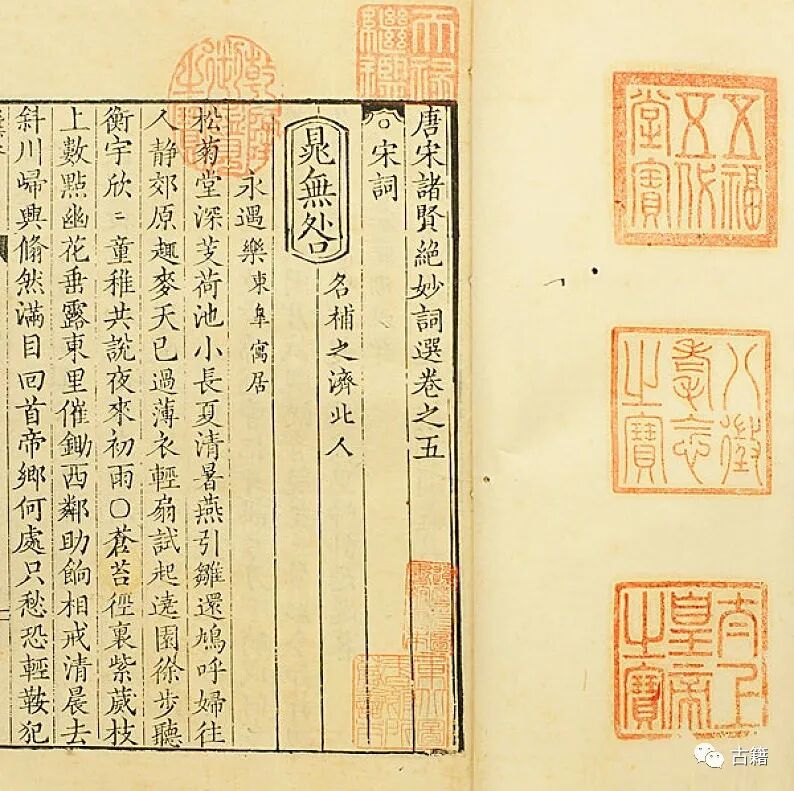 五福五代堂寶
八徵耄念之寶
太上皇帝之寶
天祿繼鑑
乾隆御覽之寶
唐宋諸賢絶妙詞選卷之五
宋詞
晁無咎
名補之濟北人
永遇樂 東皋寓居
松菊堂深芰荷池小長夏清暑燕引雛還鳩呼婦往
人静郊原趣麥天已過薄衣輕扇試起遶園徐步聽
衡宇欣〻童稚共説夜來初雨〇蒼苔徑裏紫葳枝
上數點幽花垂露東里催鋤西鄰助餉相戒清晨去
斜川歸興翛然滿目回首帝鄉何處只愁恐輕鞍犯
古籍